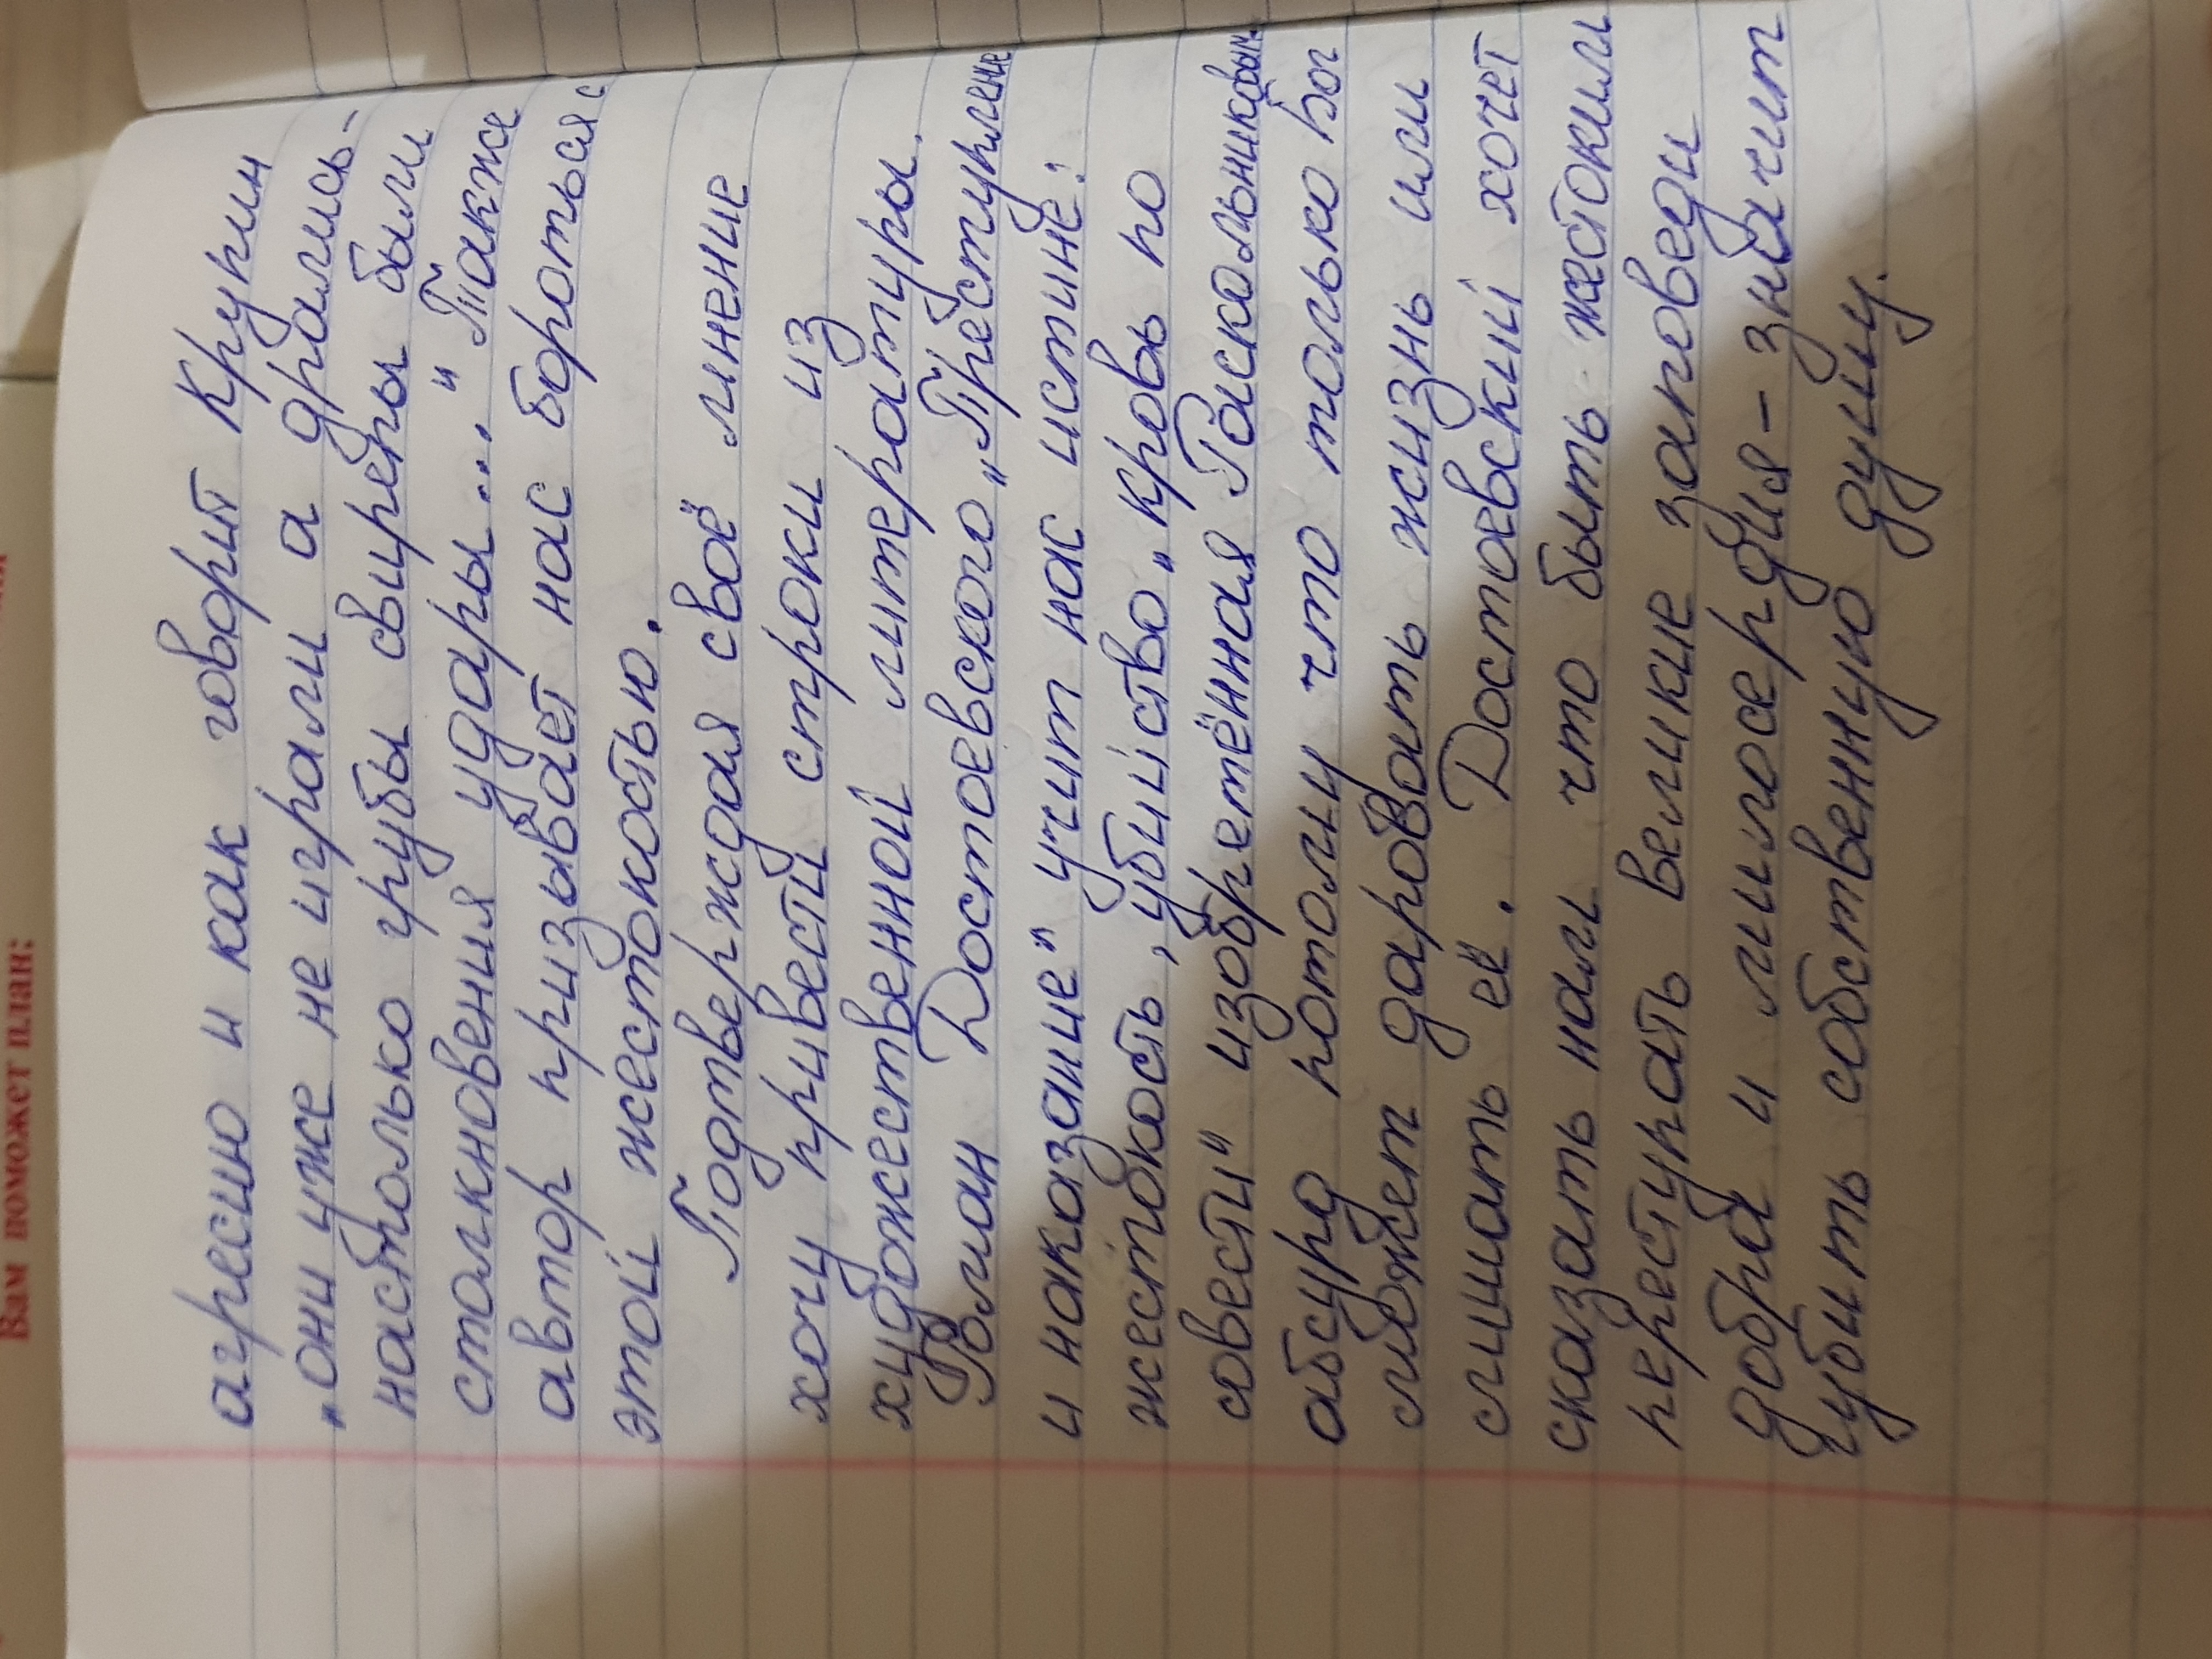 Вам поможет план:
агресию и как говорит Крупин
„они уже не играли а дрались-
настолько грубы свирепы были
столкновения удары..." Также
автор призывает нас бороться с
этой жестокостью.
Подтверждая своё мнение
хочу привести строки из
художественной литературы.
Роман Достоевского „Преступление
и наказание" учит нас истине:
жестокость, убийство „кровь по
совести" изобретённая Раскольниковым
абсурд потому что только Бог
может даровать жизнь или
лишать её. Достоевский хочет
сказать нам что быть жестоким
преступать великие заповеди
добра и милосердия - значит
губить собственную душу.